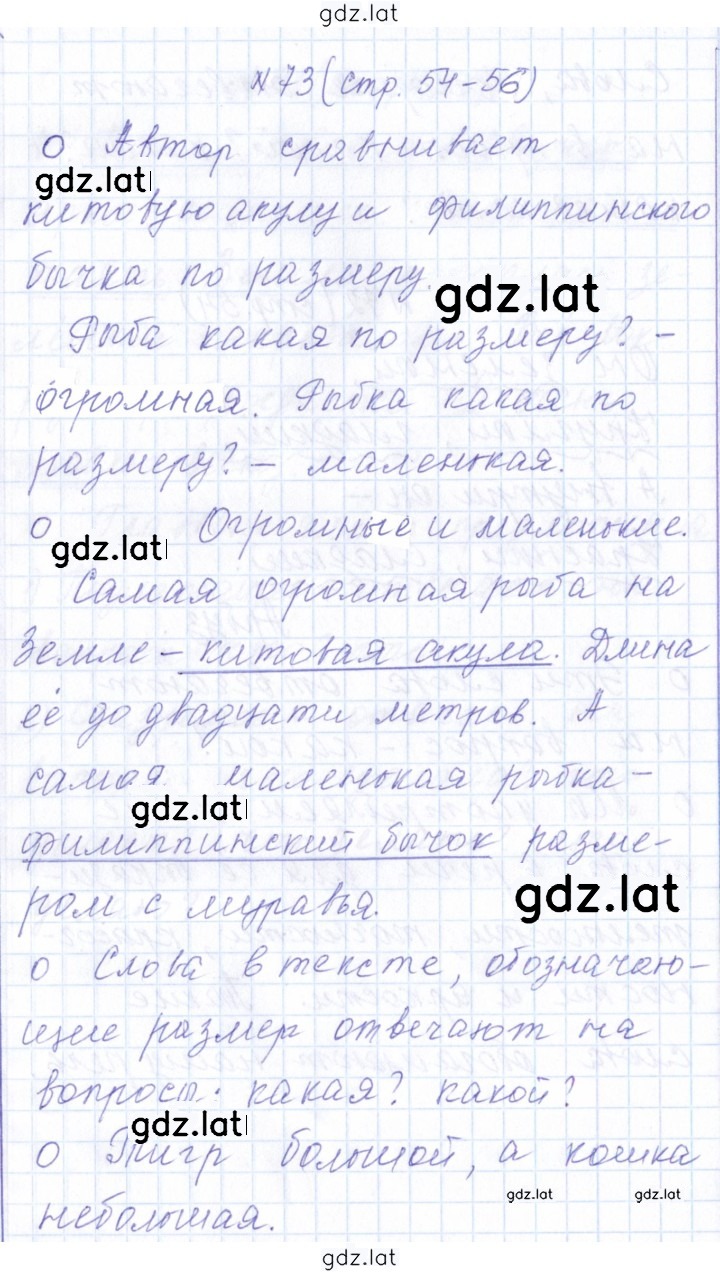 gdz.lat
№73 (стр. 54-56)
о Автор сравнивает
gdz.lat
китовую акулу и филиппинского
бычка по размеру.
gdz.lat
Рыба какая по размеру? -
огромная. Рыбка какая по
размеру? - маленькая.
о Огромные и маленькие.
gdz.lat
Самая огромная рыба на
Земле - китовая акула. Длина
её до двадцати метров. А
самая маленькая рыбка -
gdz.lat
филиппинский бычок разме-
gdz.lat
ром с муравья.
о Слова в тексте, обозначаю-
щие размер отвечают на
вопросы: какая? какой?
gdz.lat
о Тигр большой, а кошка
gdz.lat gdz.lat
небольшая.
gdz.lat